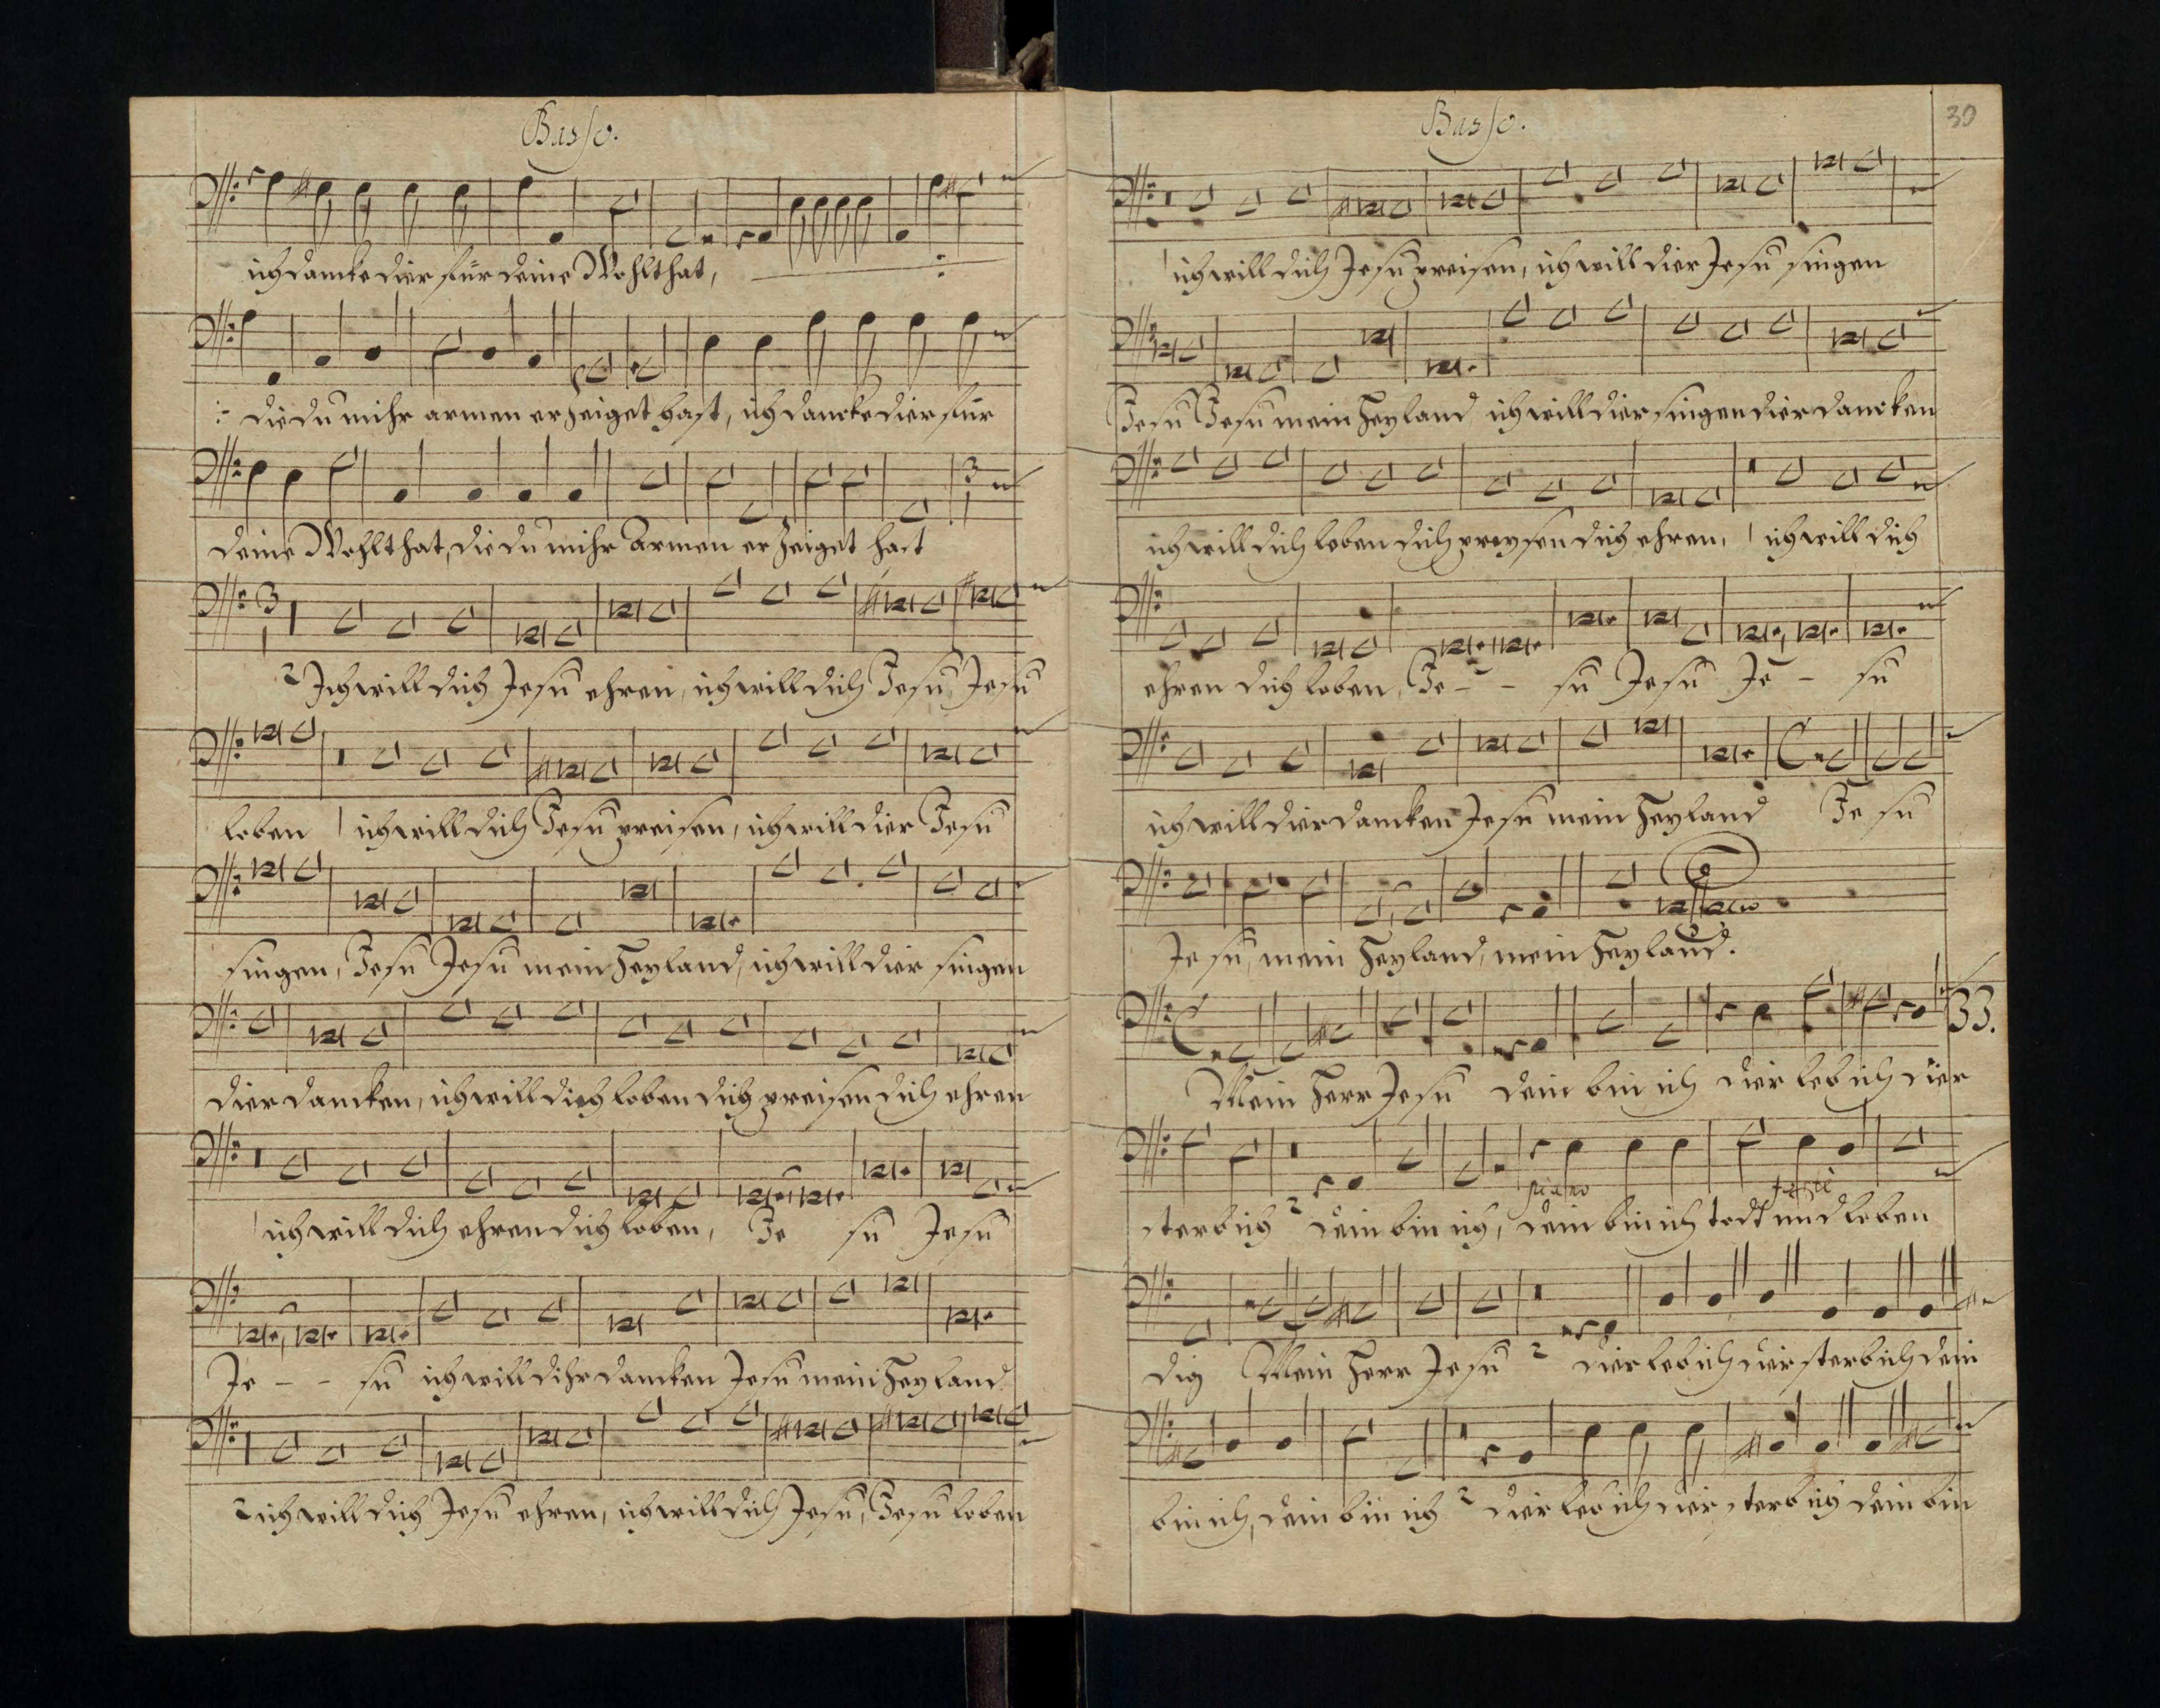 Basso.
ich dancke dier für deine Wohlthat,
:: die du mihr armen erzeiget hast, ich dancke dier für
deine Wohlthat, die du mihr Armen erzeiget hast
3
3
2 Ich will dich Jesu ehren, ich will dich Jesu, Jesu
loben ich will dich Jesu preisen, ich will dier Jesu
singen, Jesu Jesu mein Heyland, ich will dier singen
dier dancken, ich will dich loben dich preisen dich ehren
ich will dich ehren dich loben, Je su Jesu
Je - - su ich will dihr dancken Jesu mein Heyland
2 ich will dich Jesu ehren, ich will dich Jesu, Jesu loben
Basso.
30
ich will dich Jesu preisen, ich will dier Jesu singen
Jesu Jesu mein Heyland ich will dier singen dier dancken
ich will dich loben dich preysen dich ehren, ich will dich
ehren dich loben, Je - - su Jesu Je - su
ich will dier dancken Jesu mein Heyland Je su
Je su, mein Heyland, mein Heyland.
33.
Mein Herr Jesu dein bin ich dier leb ich dier
piano
sterb ich 2 dein bin ich, dein bin ich todt und leben
dig Mein Herr Jesu 2 dier leb ich dier sterb ich dein
bin ich, dein bin ich 2 dier leb ich dier sterb ich dein bin